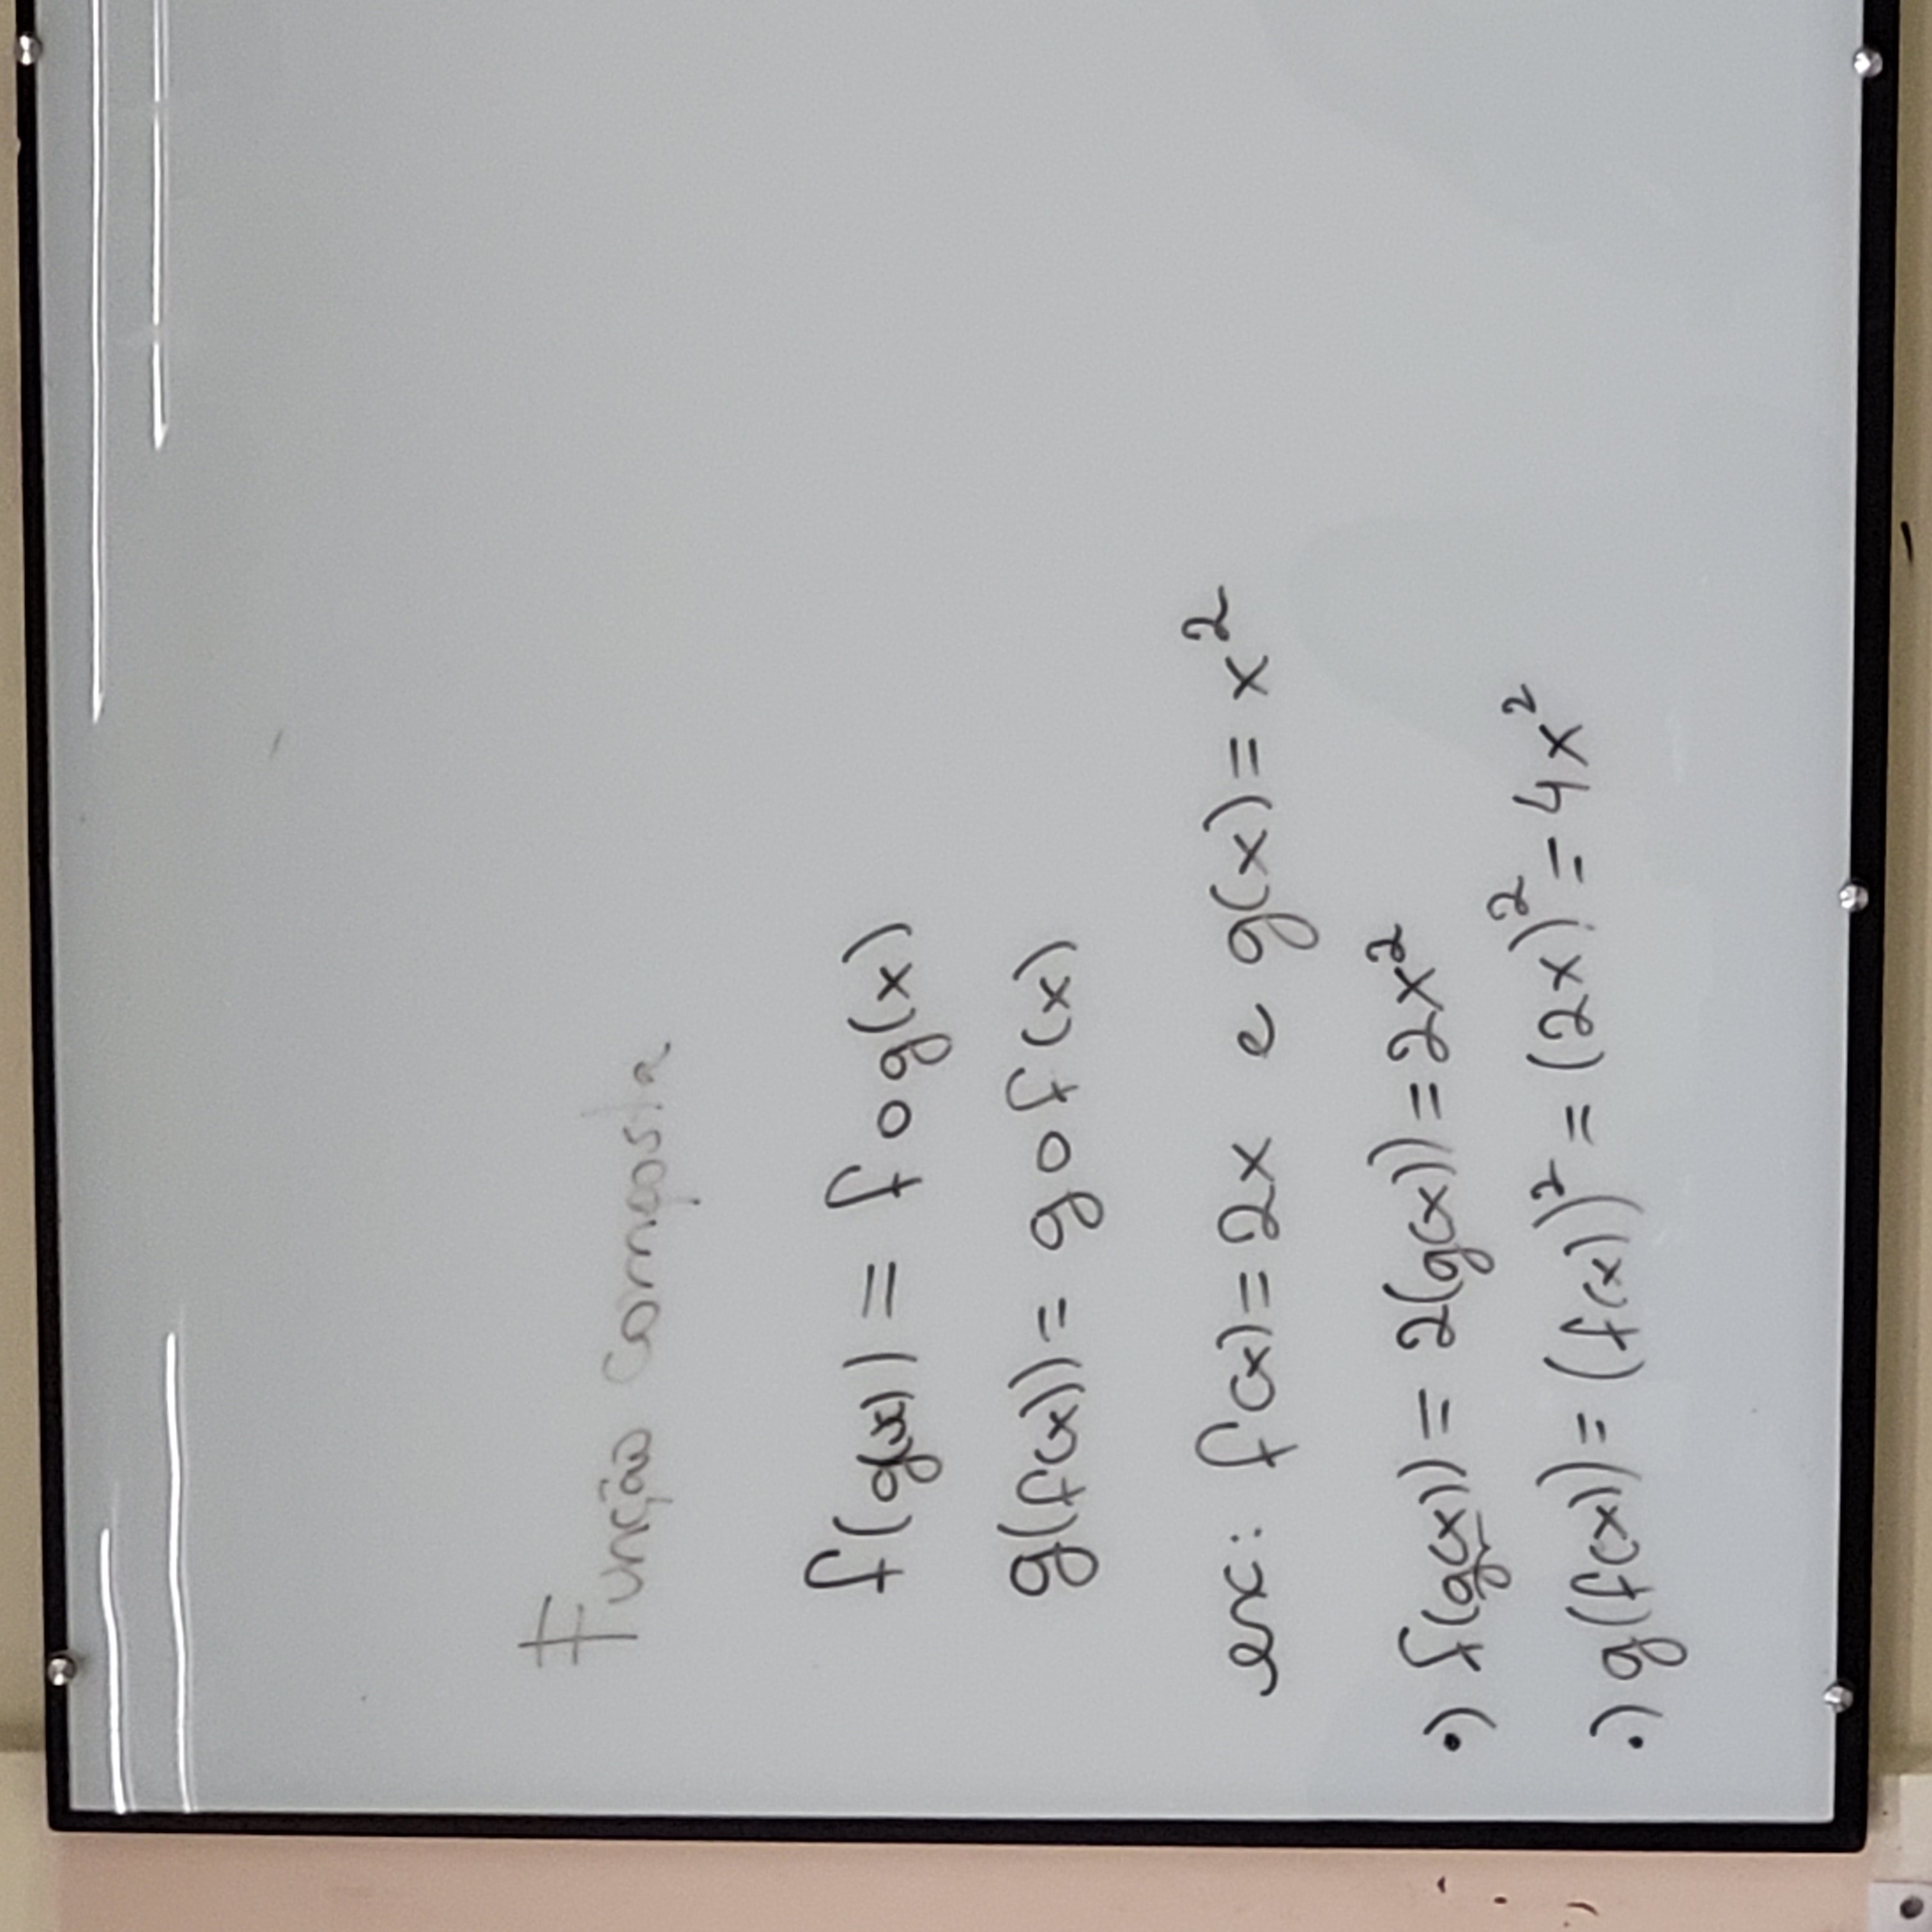 Função composta
f(g(x)) = f o g(x)
g(f(x)) = g o f(x)
ex: f(x) = 2x e g(x) = x²
•) f(g(x)) = 2(g(x)) = 2x²
•) g(f(x)) = (f(x))² = (2x)² = 4x²